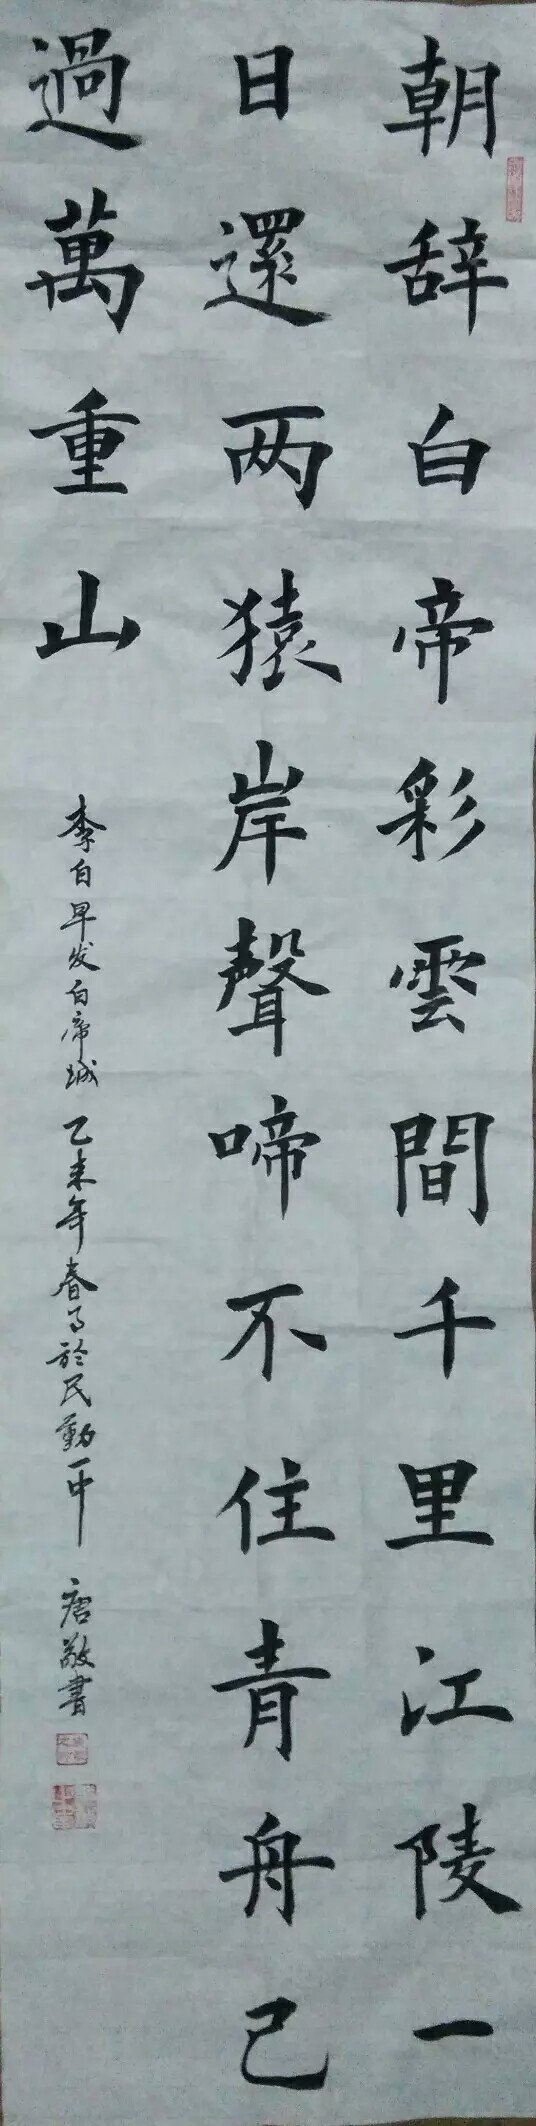 朝辞白帝彩雲間千里江陵一
日還两猿岸聲啼不住青舟已
過萬重山
李白早发白帝城 乙未年春写於民勤一中 唐敬書